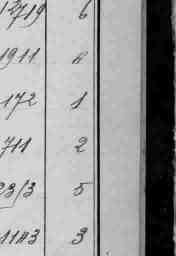 2719 6
1911 2
172 1
711 2
23/3 5
1143 3